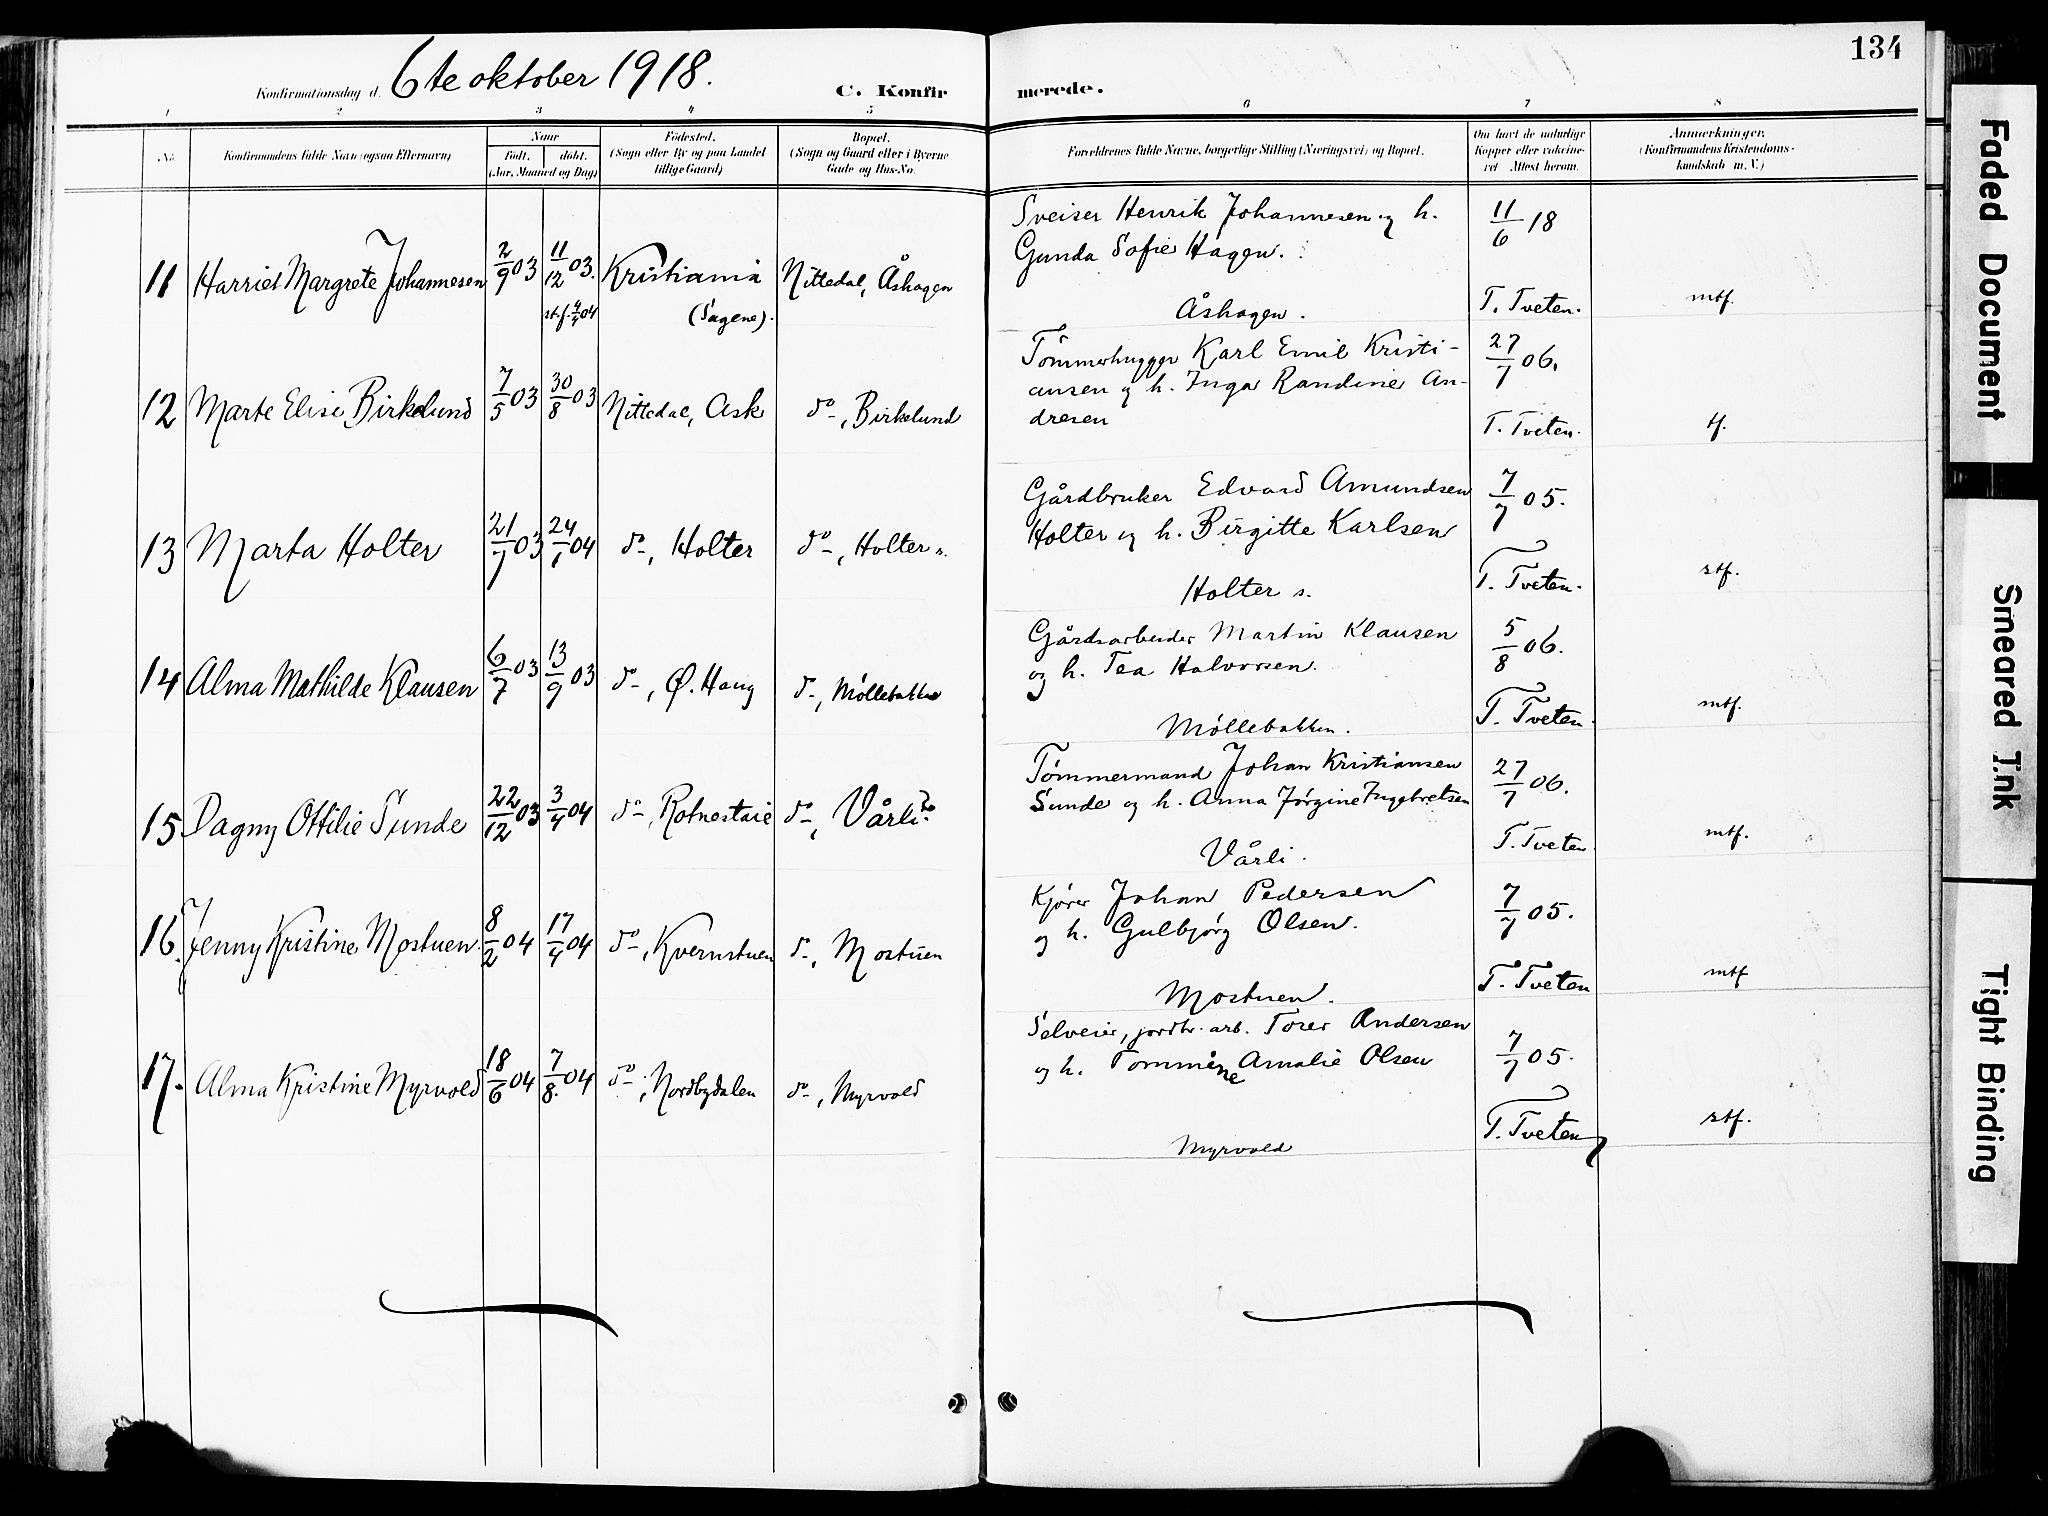 134
Konfirmationsdag d. 6te oktober 1918.
C. Konfirmerede.
1 2 3 4 5 6 7 8
No.
Konfirmandens fulde Navn (ogsaa Efternavn)
Naar
født. døbt.
(Aar, Maaned og Dag)
Fødested.
(Sogn eller By og paa Landet
tillige Gaard)
Bopæl.
(Sogn og Gaard eller i Byerne
Gade og Hus-No.
Forældrenes fulde Navne, borgerlige Stilling (Næringsvei) og Bopæl.
Om havt de naturlige
Kopper eller vaccine-
ret Attest herom.
Anmærkninger.
(Konfirmandens Kristendoms-
kundskab m. V.)
11 Harriet Margrete Johannesen 2/9 03 11/12 03. Kristiania Nittedal, Åshagen
st.f. 4/4 04 (Sagene).
Sveiser Henrik Johannesen og h.
Gunda Sofie Hagen.
Åshagen.
11/6 18
T. Tveten.
mtf.
12 Marte Elise Birkelund 7/5 03 30/8 03 Nittedal, Ask do, Birkelund
Tømmerhugger Karl Emil Kristi-
ansen og h. Inga Randine An-
dresen
27/7 06.
T. Tveten.
tf.
13 Marta Holter 21/7 03 24/1 04 do, Holter do, Holter s.
Gårdbruker Edvard Amundsen
Holter og h. Birgitte Karlsen
Holter s.
7/7 05.
T. Tveten.
stf.
14 Alma Mathilde Klausen 6/7 03 13/9 03 do, Ø. Haug do, Møllebakken
Gårdsarbeider Martin Klausen
og h. Tea Halvorsen.
Møllebakken.
5/8 06.
T. Tveten.
mtf.
15 Dagny Ottilie Sunde 22/12 03 3/4 04 do, Rotnestaie do, Vårli
Tømmermand Johan Kristiansen
Sunde og h. Anna Jørgine Ingebretsen
Vårli.
27/7 06.
T. Tveten.
mtf.
16. Jenny Kristine Mostuen. 8/2 04 17/4 04 do, Kvernstuen do, Mostuen
Kjører Johan Pedersen
og h. Gulbjørg Olsen.
Mostuen.
7/7 05.
T. Tveten
mtf
17. Alma Kristine Myrvold 18/6 04 7/8. 04 do, Nordbydalen do, Myrvold
Selveier, jordbr. arb. Torer Andersen
og h. Tommine Amalie Olsen
Myrvold
7/7 05.
T. Tveten
stf.
Faded Document
Smeared Ink
Tight Binding